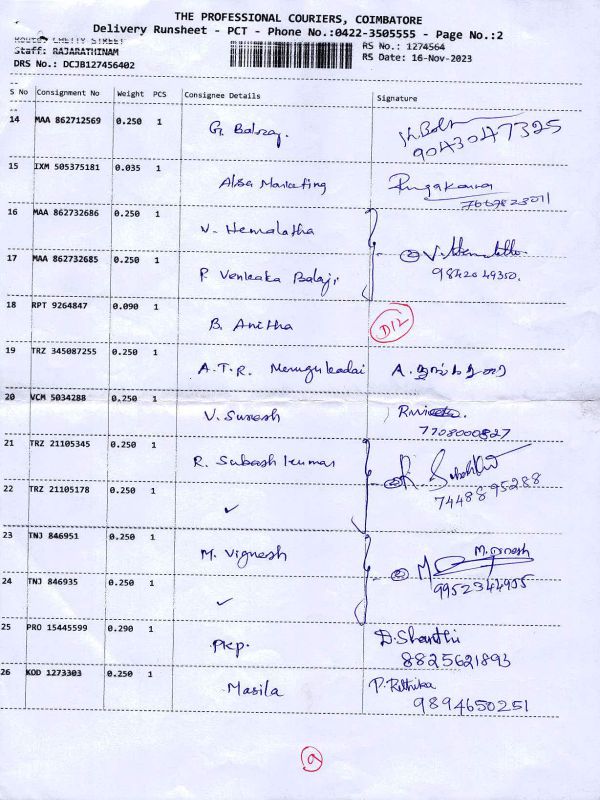 THE PROFESSIONAL COURIERS, COIMBATORE
Delivery Runsheet - PCT - Phone No.:0422-3505555 - Page No.:2
Staff: RAJARATHINAM
RS No.: 1274564
DRS No.: DCJB127456402
RS Date: 16-Nov-2023
S No Consignment No Weight PCS Consignee Details Signature
14 MAA 862712569 0.250 1 G. Balraj. 9043047325
15 IXM 505375181 0.035 1 Alsa Marketing 7667823011
16 MAA 862732686 0.250 1 V. Hemalatha
17 MAA 862732685 0.250 1 P. Venkata Balaji 2 V. Hemalatha 9842049350.
18 RPT 9264847 0.090 1 B. Anitha D12
19 TRZ 345087255 0.250 1 A.T.R. Murugukadai
20 VCM 5034288 0.250 1 V. Suresh 7708000827
21 TRZ 21105345 0.250 1 R. Subash kumar
22 TRZ 21105178 0.250 1 ✓ 7448895288
23 TNJ 846951 0.250 1 M. Vignesh M. Vignesh
24 TNJ 846935 0.250 1 ✓ 2 9952344955
25 PRO 15445599 0.290 1 PKP. D. Shanthi 8825621893
26 KOD 1273303 0.250 1 Masila P. Rithika 9894650251
9